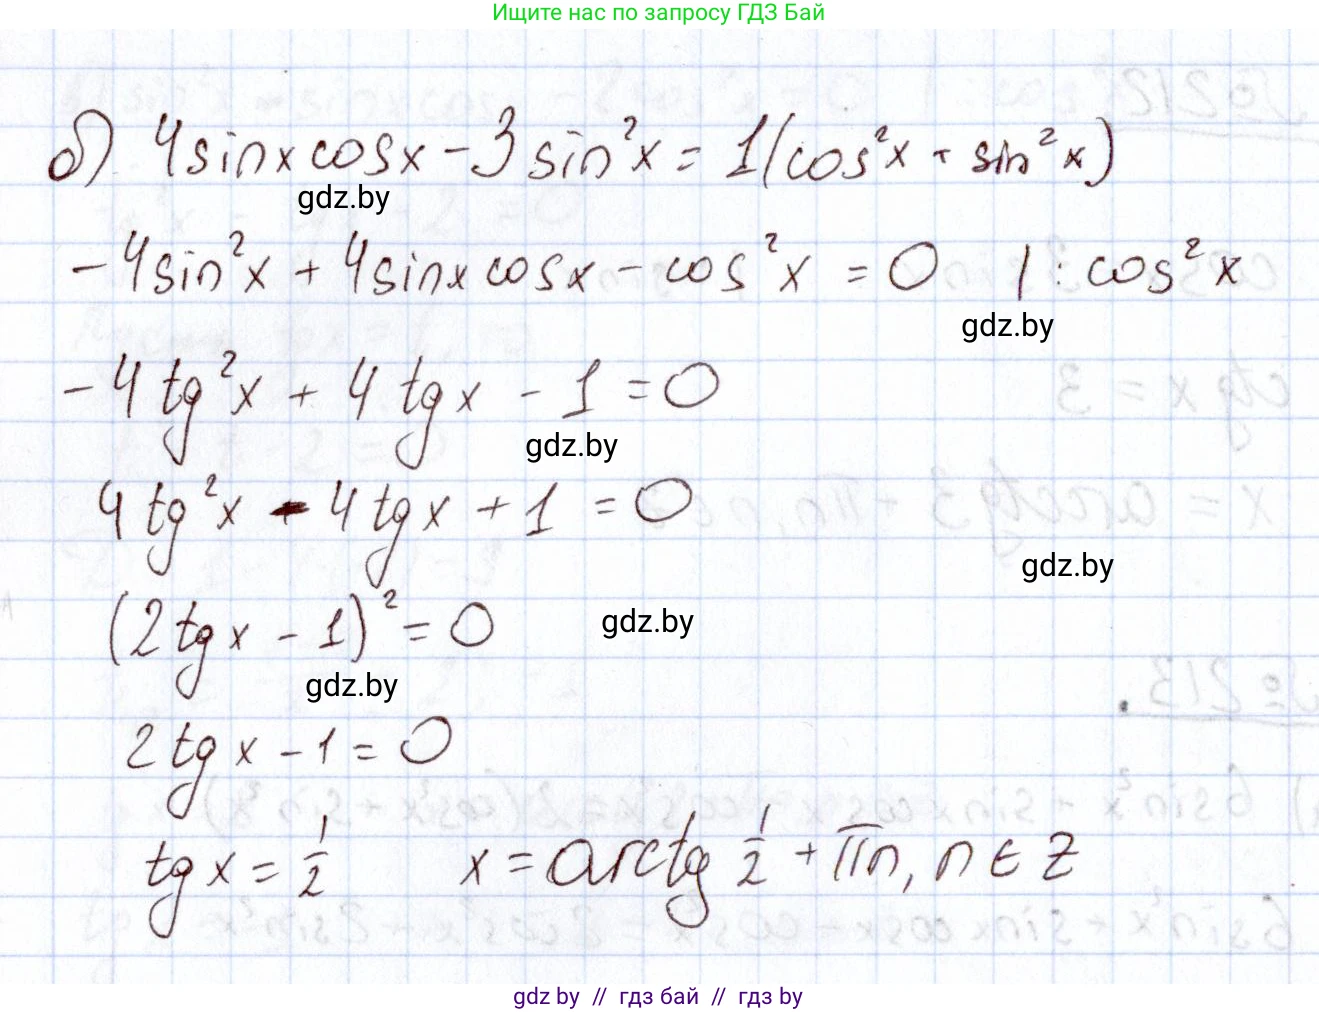 Ищите нас по запросу ГДЗ Бай
б) 4sinx cosx - 3sin²x = 1(cos²x + sin²x)
gdz.by
-4sin²x + 4sinx cosx - cos²x = 0 | : cos²x
gdz.by
-4tg²x + 4tgx - 1 = 0
gdz.by
4tg²x - 4tgx + 1 = 0
gdz.by
(2tgx - 1)² = 0
gdz.by
gdz.by
2tgx - 1 = 0
tgx = 1/2 x = arctg 1/2 + πn, n ∈ Z
gdz by // гдз бай // гдз by